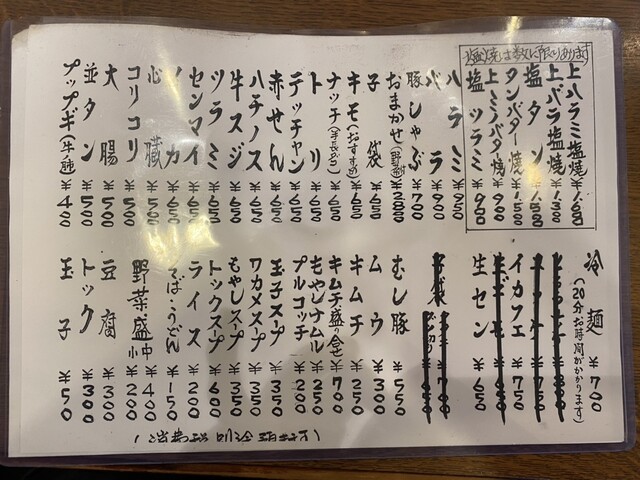 塩焼は数に限りあります
上ハラミ塩焼 ¥1,600
上バラ塩焼 ¥1,300
塩タン
タンバター焼
上ミノバタ焼 ¥900
塩ツラミ ¥900
ハラミ ¥950
バラ ¥900
豚しゃぶ ¥700
おまかせ
子袋 ¥650
キモ(おすすめ) ¥650
ナッチ ¥650
トリ ¥650
テッチャン ¥650
赤せん ¥650
ハチノス ¥650
牛スジ ¥650
ツラミ ¥650
センマイ ¥650
心臓
コリコリ ¥500
大腸 ¥500
並タン ¥500
プップギ(牛の肺) ¥400
冷麺 ¥700
(20分お時間がかかります)
イカフェ ¥750
生セン ¥650
むし豚 ¥550
ムウ ¥300
キムチ ¥250
キムチ盛り合せ ¥700
もやしナムル ¥250
プルコッチ ¥200
玉子スープ ¥350
ワカメスープ ¥350
もやしスープ ¥350
トックスープ ¥600
ライス ¥200
そば・うどん ¥150
野菜盛 中 ¥400
小 ¥200
豆腐 ¥300
トック ¥300
玉子 ¥50